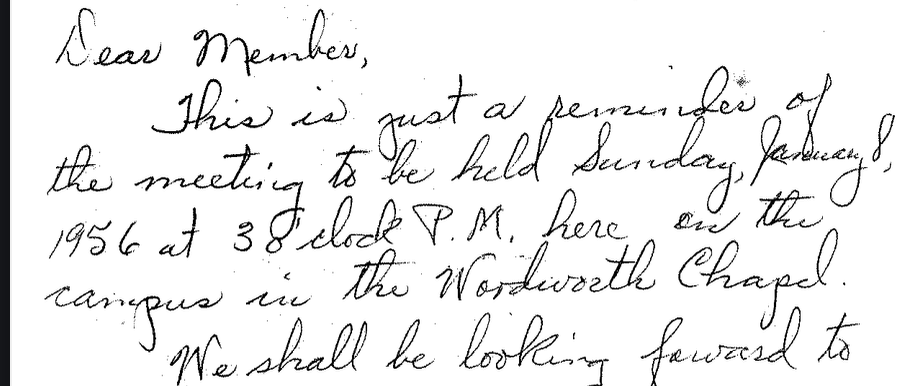 Dear Member,
This is just a reminder of
the meeting to be held Sunday, January 8,
1956 at 3 O'clock P.M. here on the
campus in the Wordworth Chapel.
We shall be looking forward to